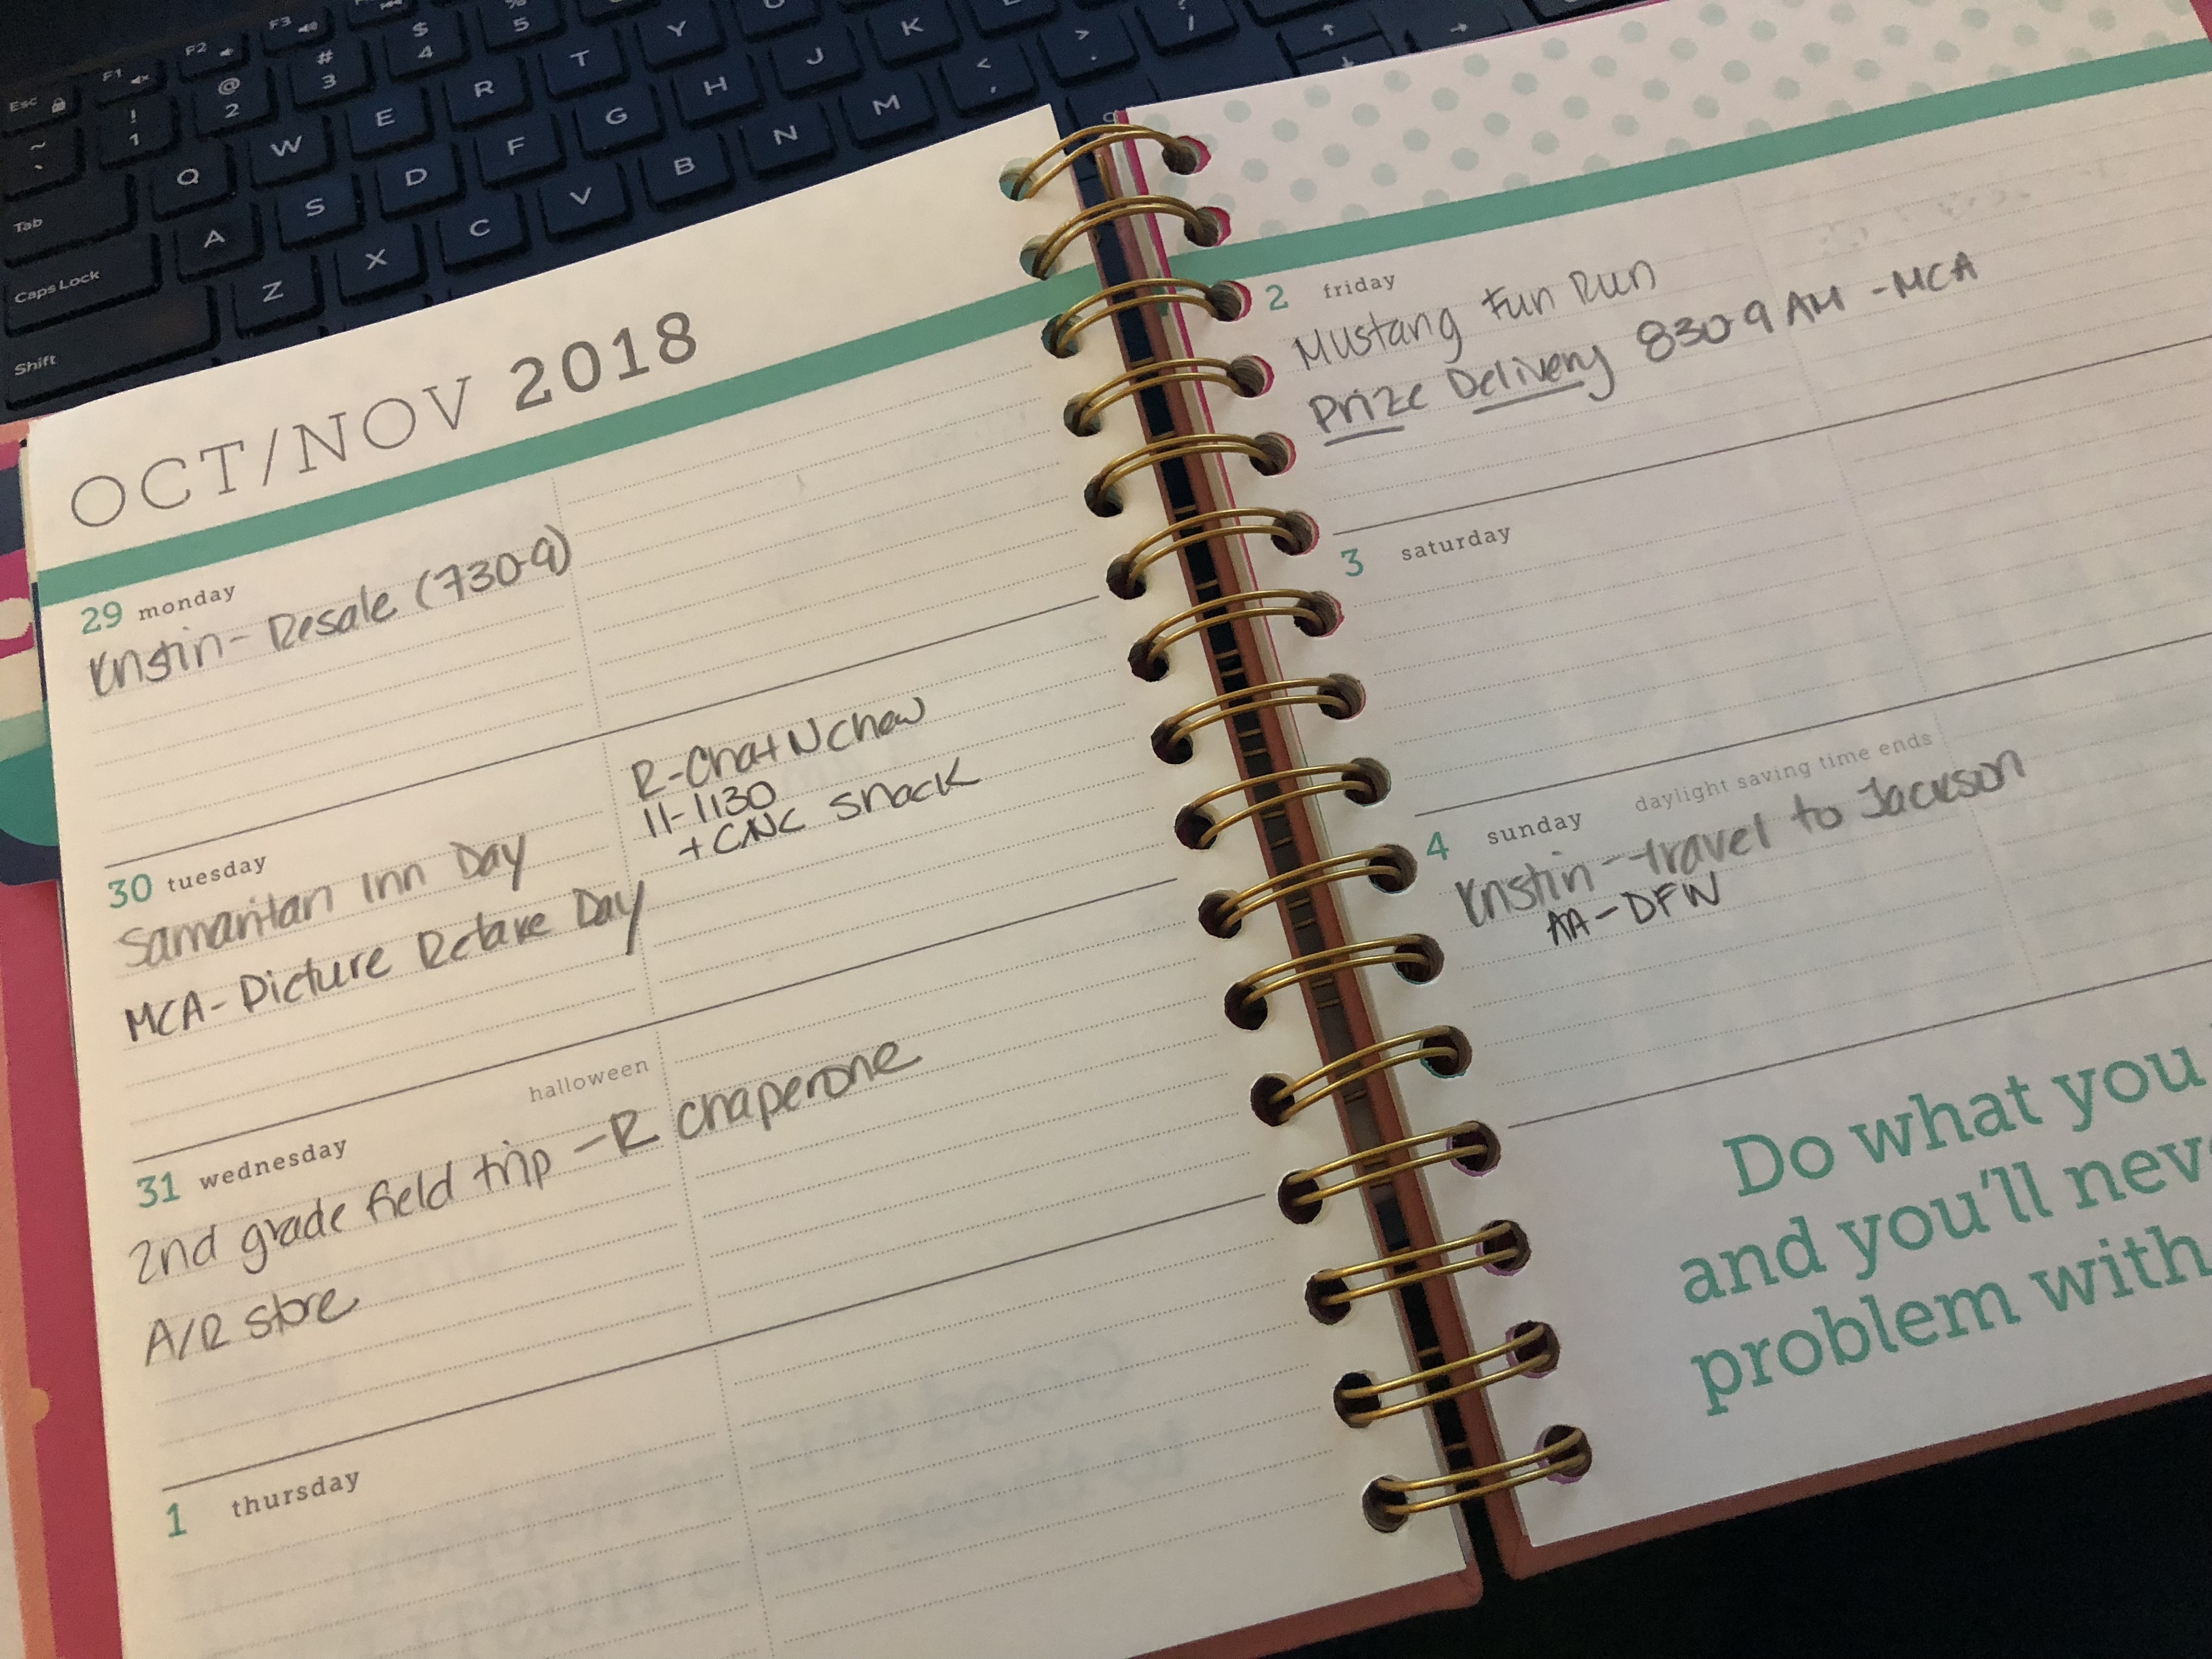 Esc F1 F2 F3
~ ! @ # $ %
` 1 2 3 4 5
Tab Q W E R T Y
Caps Lock A S D F G H J K
Shift Z X C V B N M < > ?
, . /
OCT/NOV 2018
29 monday
Kristin- Resale (730-9)
30 tuesday
Samaritan Inn Day
MCA- Picture Retake Day
R-Chat N Chew
11-1130
+ CNC snack
halloween
31 wednesday
2nd grade field trip - R chaperone
A/R store
1 thursday
2 friday
Mustang Fun Run
Prize Delivery 830-9 AM - MCA
3 saturday
daylight saving time ends
4 sunday
Kristin - travel to Jackson
AA - DFW
Do what you
and you'll
problem with